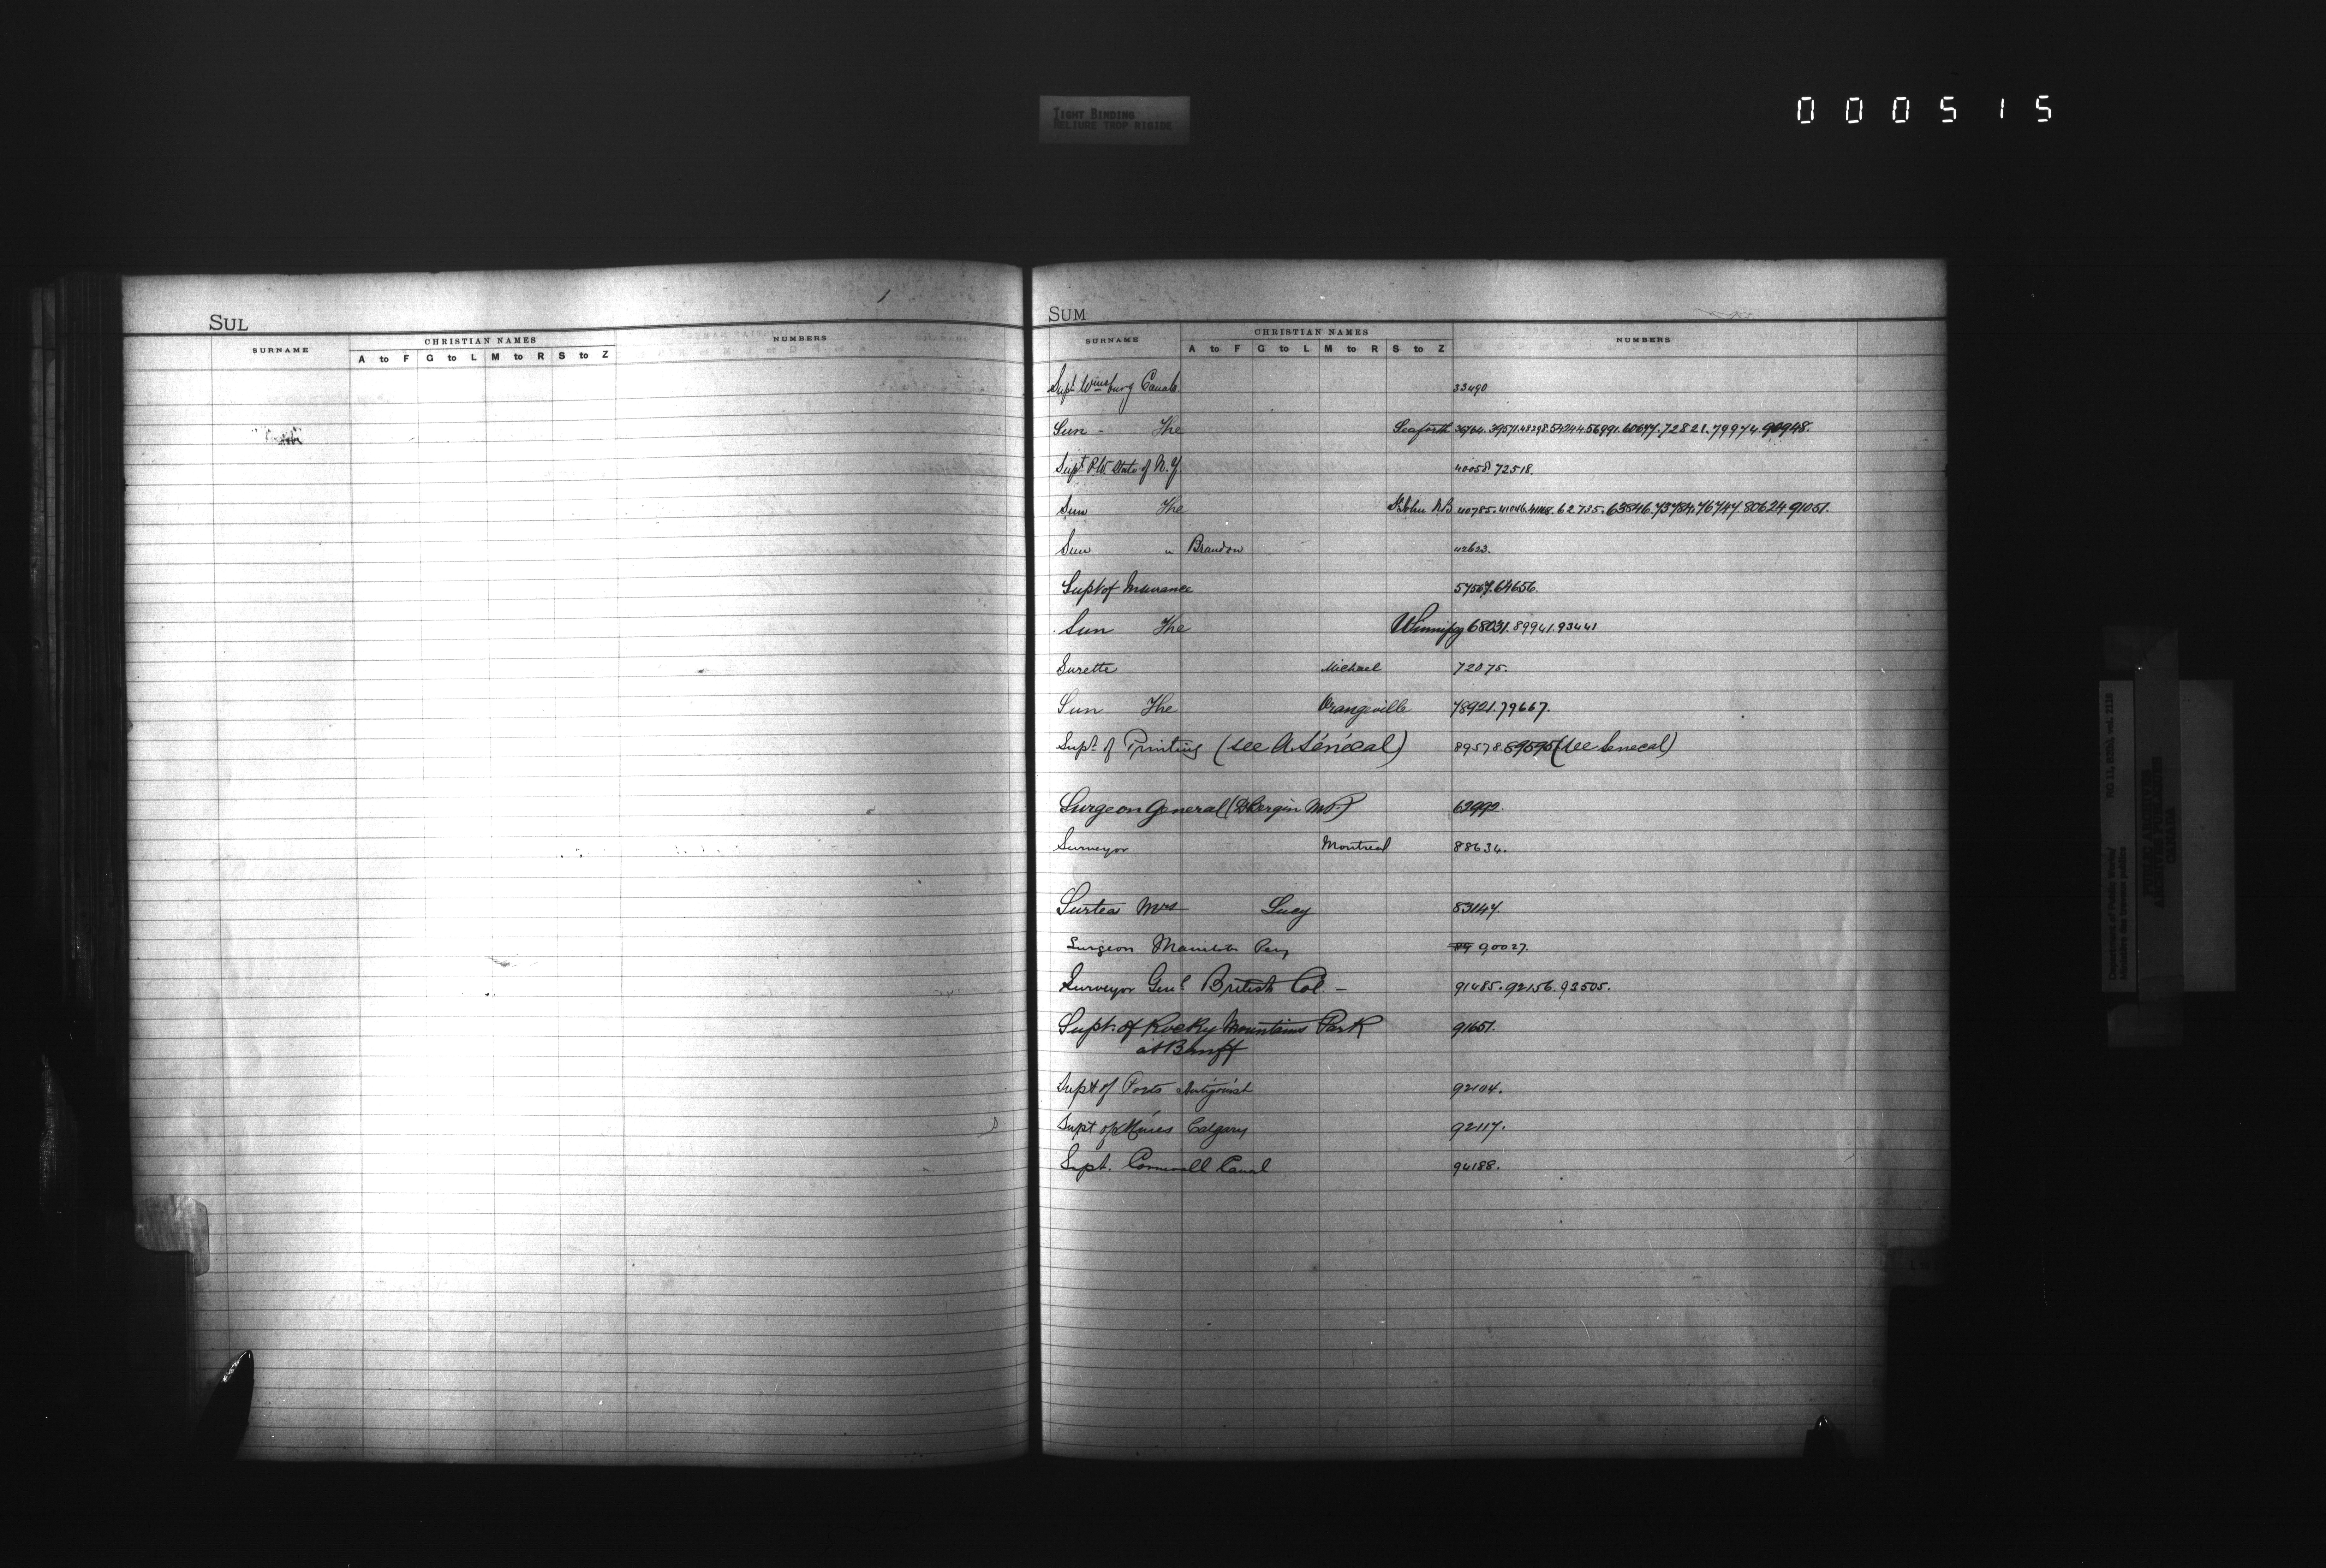 TIGHT BINDING
RELIURE TROP RIGIDE
000515
SUL
SURNAME CHRISTIAN NAMES NUMBERS
A to F G to L M to R S to Z
SUM
SURNAME CHRISTIAN NAMES NUMBERS
A to F G to L M to R S to Z
Supt Wmsburg Canals 33490
Sun - The Seaforth 39571.48298. 72821.79974.90948.
Supt P.W. State of N.Y. 40058.72518.
Sun The St John N.B 40785.41046. 62735.63846.73784.76747.80624.91051.
Sun " Brandon 42623.
Supt of Insurance 57567.64656.
Sun The Winnipeg 68031.89941.93441
Surette Michael 72075.
Sun The Orangeville 78921.79667.
Supt of Printing (see A Sénécal) 89578.89595 (see Senecal)
Surgeon General (D Bergin M.P.) 62992.
Surveyor Montreal 88634.
Surtees Mrs Lucy 83147.
Surgeon Manitoba Peny 89 90027.
Surveyor Genl British Col. - 91485.92156.93505.
Supt. of Rocky Mountains Park 91651.
at Banff
Supt of Ports Antigonish 92104.
Supt of Mines Calgary 92117.
Supt. Cornwall Canal 94188.
Department of Public Works/
Ministère des travaux publics
RG 11, B1(a), vol. 2126
PUBLIC ARCHIVES
ARCHIVES PUBLIQUES
CANADA